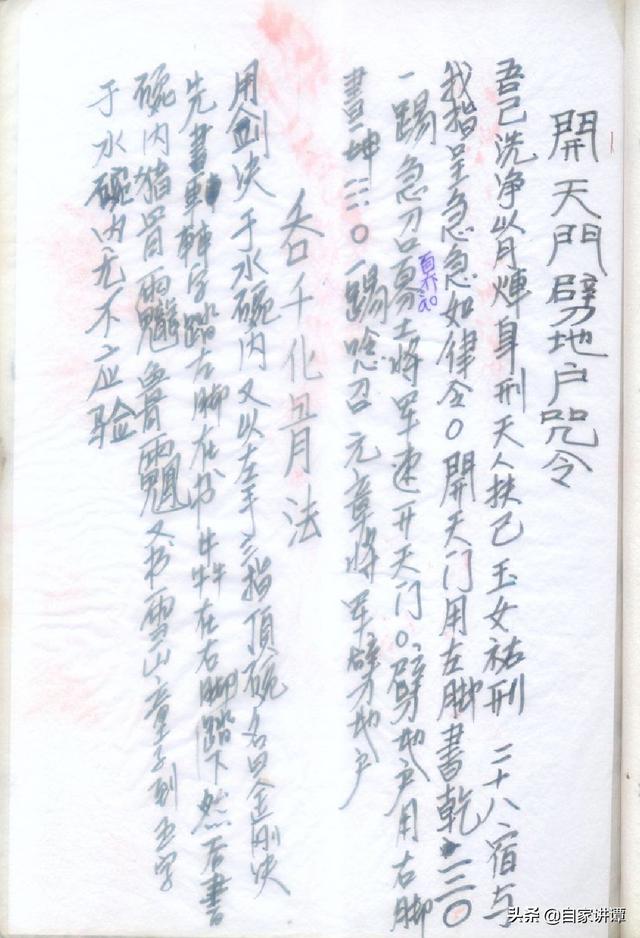 開天門劈地户咒令
吾己洗净以月煇身刑天人扶己玉女祐刑二十八宿与
我指呈急急如律令〇開天门用左脚書乾三〇
一踢急召 土将军速开天门〇劈地户用右脚
書坤三〇一踢唸召元章将军劈地户
吞千化 月法
用剑决于水碗内又以左手三指頂碗名曰金刚决
先書 字踏左脚在书牛牛在右脚踏下然后書
碗内猪骨 魯 又书雪山童子到 字
于水碗内无不应验
头条 @自家讲谭